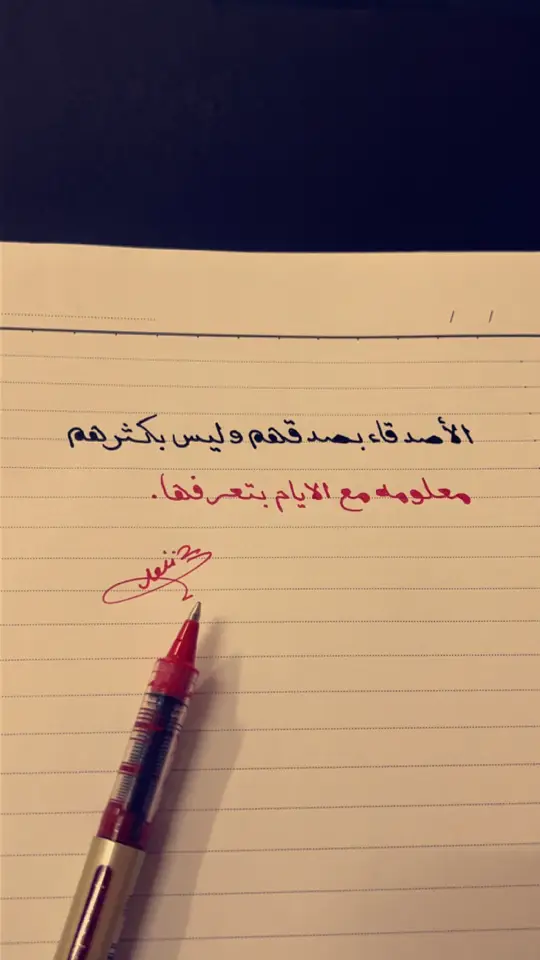 الأصدقاء بصدقهم وليس بكثرهم
معلومه مع الايام بتعرفها.